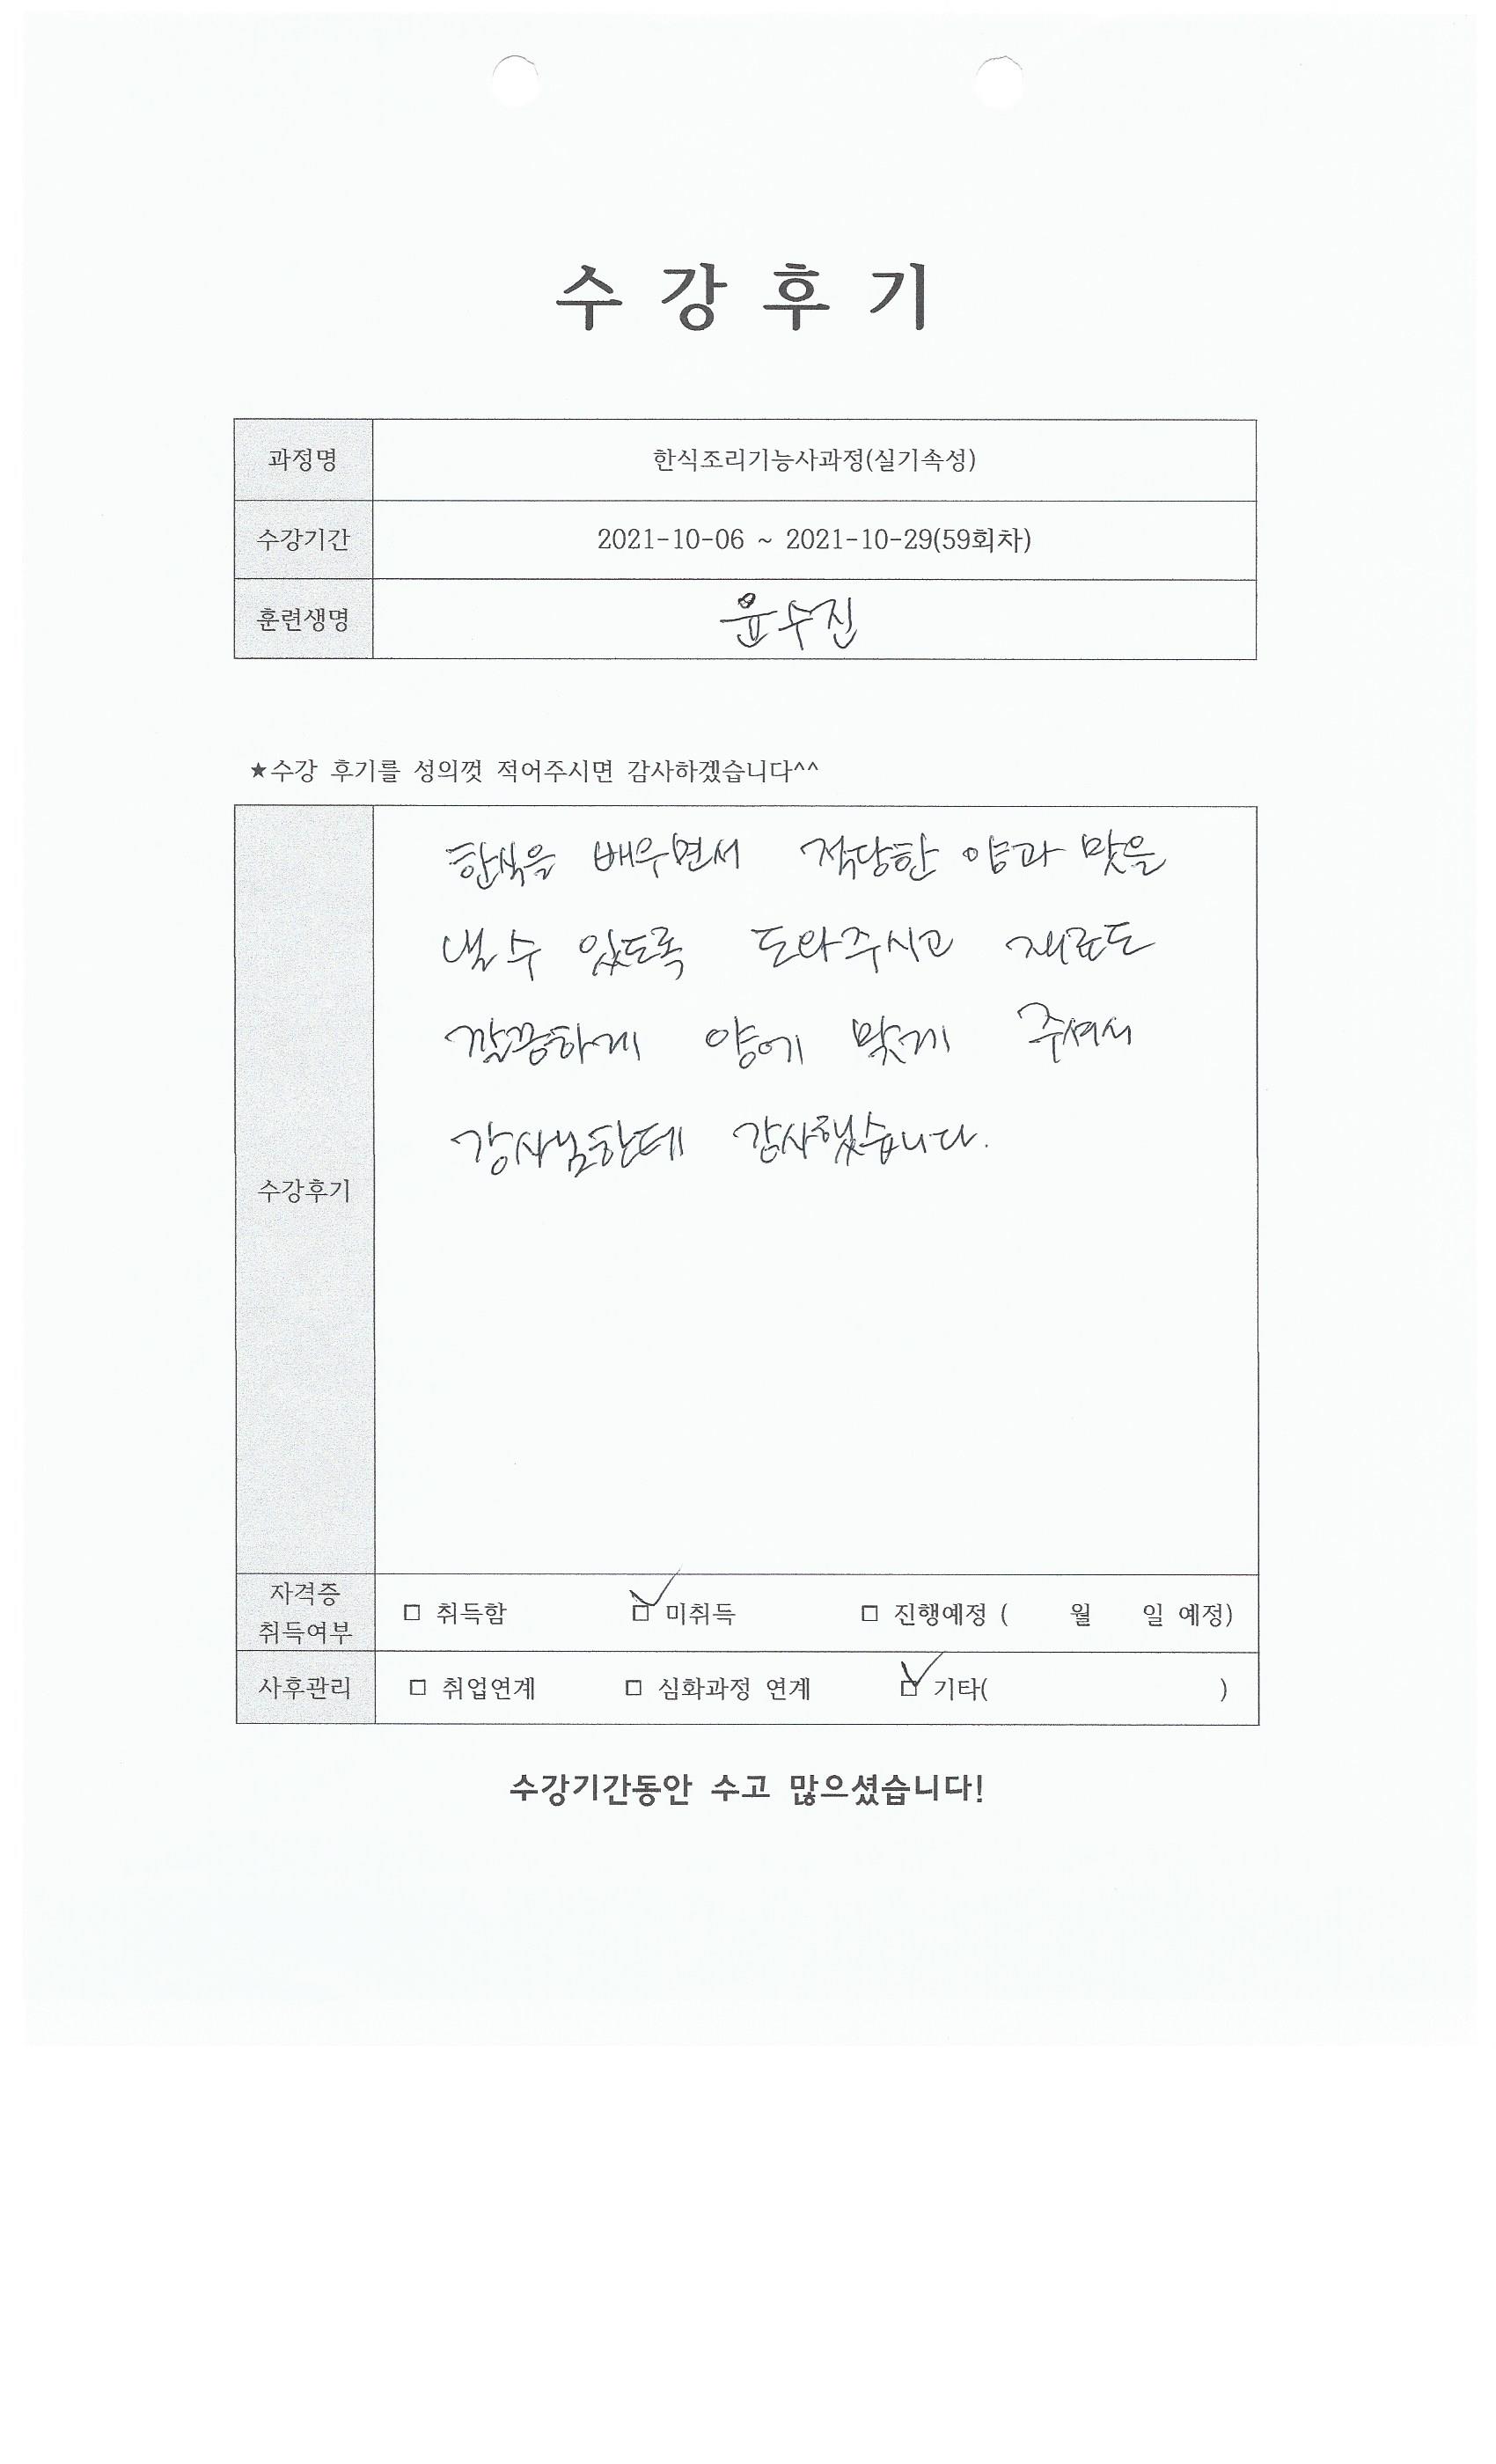 수 강 후 기
과정명 한식조리기능사과정(실기속성)
수강기간 2021-10-06 ~ 2021-10-29(59회차)
훈련생명 윤수진
★수강 후기를 성의껏 적어주시면 감사하겠습니다^^
한식을 배우면서 적당한 양과 맛을
낼 수 있도록 도와주시고 재료도
깔끔하게 양에 맞게 주셔서
강사님한테 감사했습니다.
수강후기
자격증
취득여부
□ 취득함 □ 미취득 □ 진행예정 ( 월 일 예정)
사후관리 □ 취업연계 □ 심화과정 연계 □ 기타( )
수강기간동안 수고 많으셨습니다!